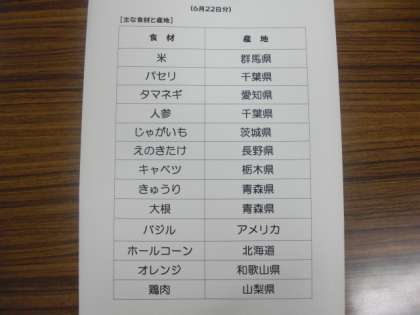 (6月22日分)
[主な食材と産地]
食材 産地
米 群馬県
パセリ 千葉県
タマネギ 愛知県
人参 千葉県
じゃがいも 茨城県
えのきたけ 長野県
キャベツ 栃木県
きゅうり 青森県
大根 青森県
バジル アメリカ
ホールコーン 北海道
オレンジ 和歌山県
鶏肉 山梨県